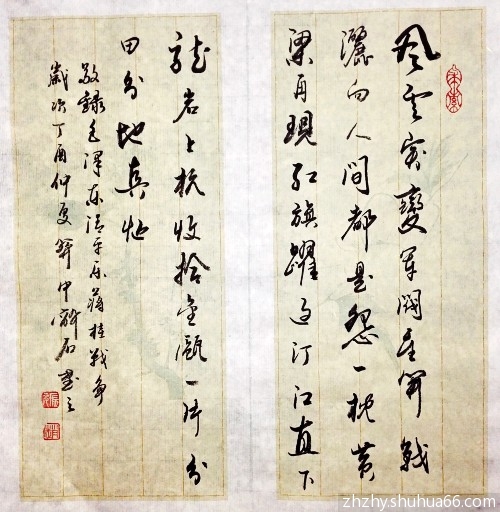 风云突变军阀重开战
灑向人间都是怨一枕黄
梁再现红旗躍过汀江直下
龙岩上杭收拾金瓯一片分
田分地真忙
敬録毛澤东清平乐蒋桂戰争
歲次丁酉仲夏
石書之
zhzhy.shuhua66.com